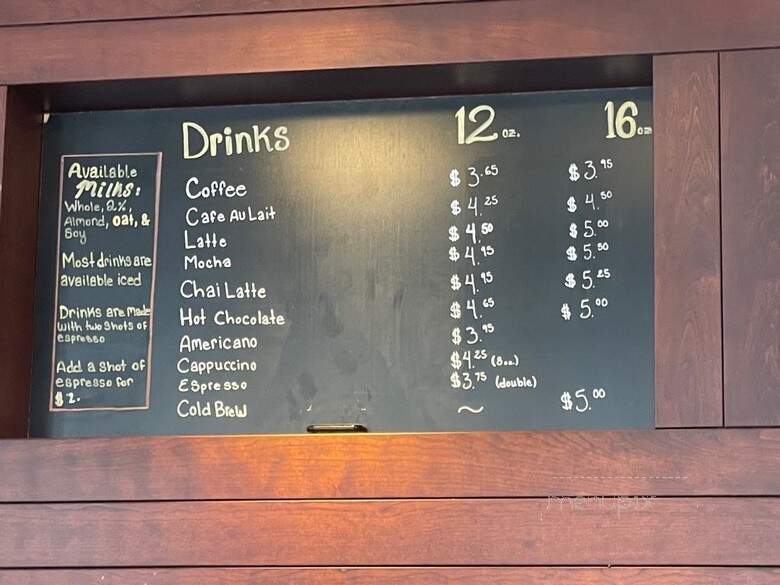 Drinks 12 oz. 16 oz
Coffee $3.65 $3.95
Cafe Au Lait $4.25 $4.50
Latte $4.50 $5.00
Mocha $4.95 $5.50
Chai Latte $4.95 $5.25
Hot Chocolate $4.65 $5.00
Americano $3.95
Cappuccino $4.25 (8oz.)
Espresso $3.75 (double)
Cold Brew ~ $5.00
Available
Milks:
Whole, 2%,
Almond, oat, &
Soy
Most drinks are
available iced
Drinks are made
with two shots of
espresso
Add a shot of
espresso for
$2.